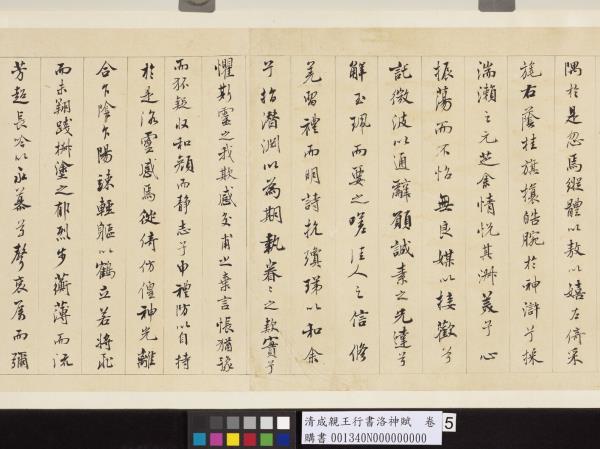 隅於是忽焉縱體以敖以嬉左倚采
旄右蔭桂旗攘皓腕於神滸兮採
湍瀨之元芝余情悅其淑美兮心
振蕩而不怡無良媒以接歡兮
託微波以通辭願誠素之先達兮
解玉珮而要之嗟佳人之信修
羌習禮而明詩抗瓊珶以和余
兮指潛淵以為期執眷〻之款實兮
懼斯靈之我欺感交甫之棄言悵猶豫
而狐疑收和顏而靜志兮申禮防以自持
於是洛靈感焉徙倚仿偟神光離
合乍陰乍陽竦輕軀以鶴立若將飛
而未翔踐椒塗之郁烈步蘅薄而流
芳超長吟以永慕兮聲哀厲而彌
清成親王行書洛神賦 卷 5
購書 001340N000000000